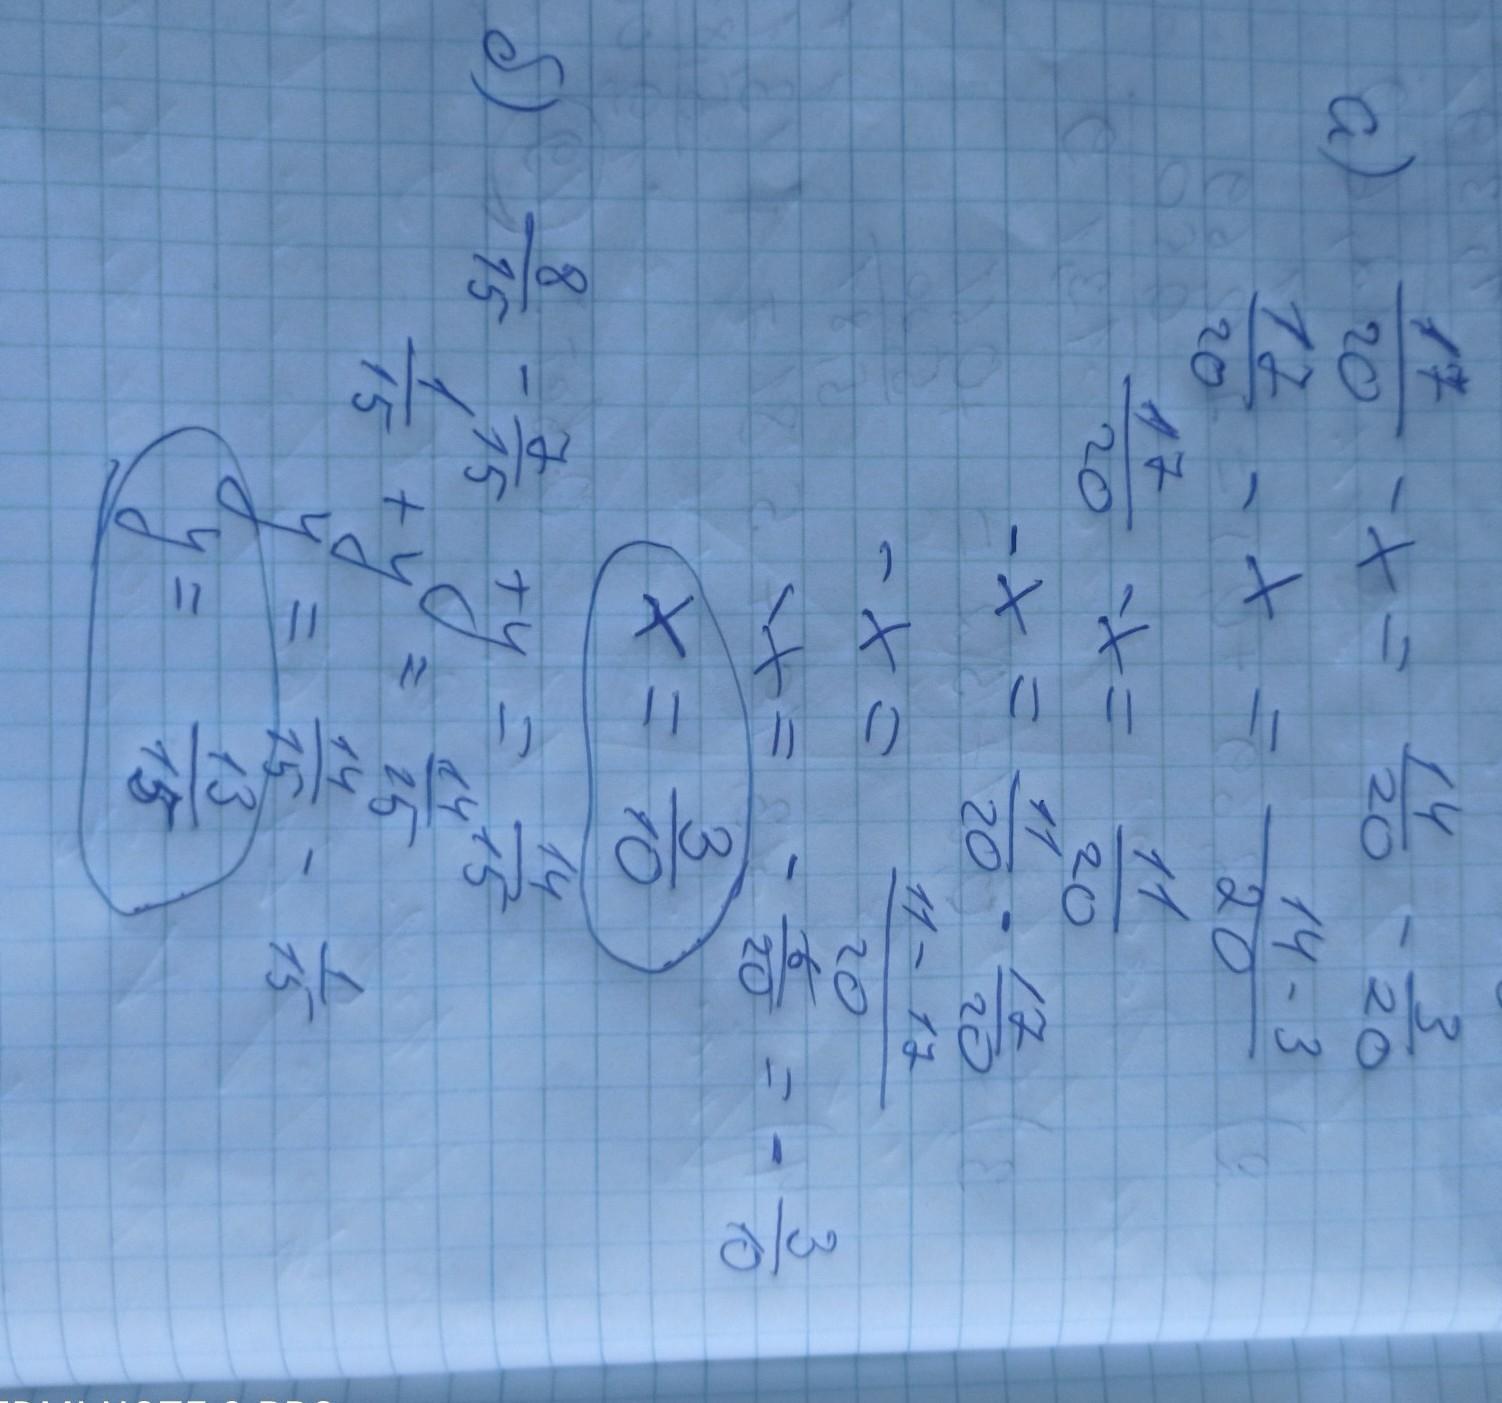 а) 17/20 - x = 14/20 - 3/20
17/20 - x = (14 - 3)/20
17/20 - x = 11/20
- x = 11/20 - 17/20
- x = (11 - 17)/20
- x = - 6/20 = - 3/10
x = 3/10
б) 8/15 - 7/15 + y = 14/15
1/15 + y = 14/15
y = 14/15 - 1/15
y = 13/15